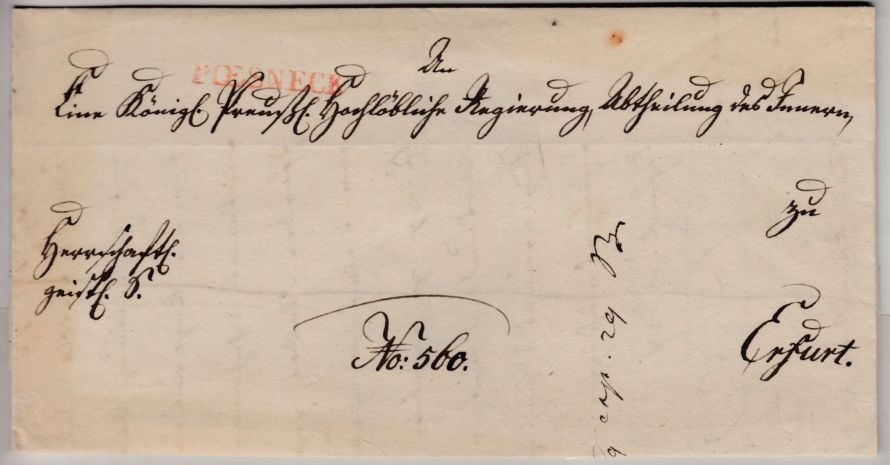 An
POESNECK
Eine Königl. Preußl. Hochlöbliche Regierung, Abtheilung des Innern,
zu
Herrschaftl.
geistl. S.
No: 560.
Erfurt.